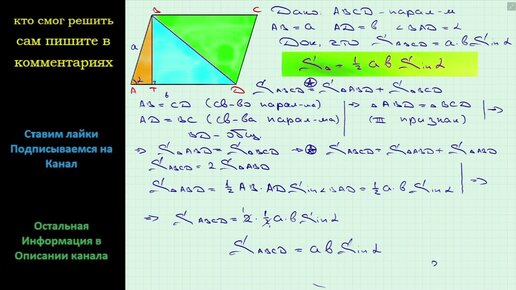 кто смог решить
сам пишите в
комментариях
Ставим лайки
Подписываемся на
Канал
Остальная
Информация в
Описании канала
B C
a
A T D
α
b
Дано: ABCD - парал-м
AB = a AD = b ∠BAD = α
Док, что S ABCD = a·b Sin α
S△ = ½ a b Sin α
S ABCD = S△ABD + S△BCD
AB = CD (св-во парал-ма) | ⇒ △ABD = △BCD | ⇒
AD = BC (св-ва парал-ма) (III признак)
BD - общ.
⇒ S△ABD = S△BCD ⇒ S ABCD = S△ABD + S△ABD
S ABCD = 2 S△ABD
S△ABD = ½ AB·AD Sin∠BAD = ½ a·b Sin α | ⇒
⇒ S ABCD = 2·½ a·b Sin α
S ABCD = a b Sin α